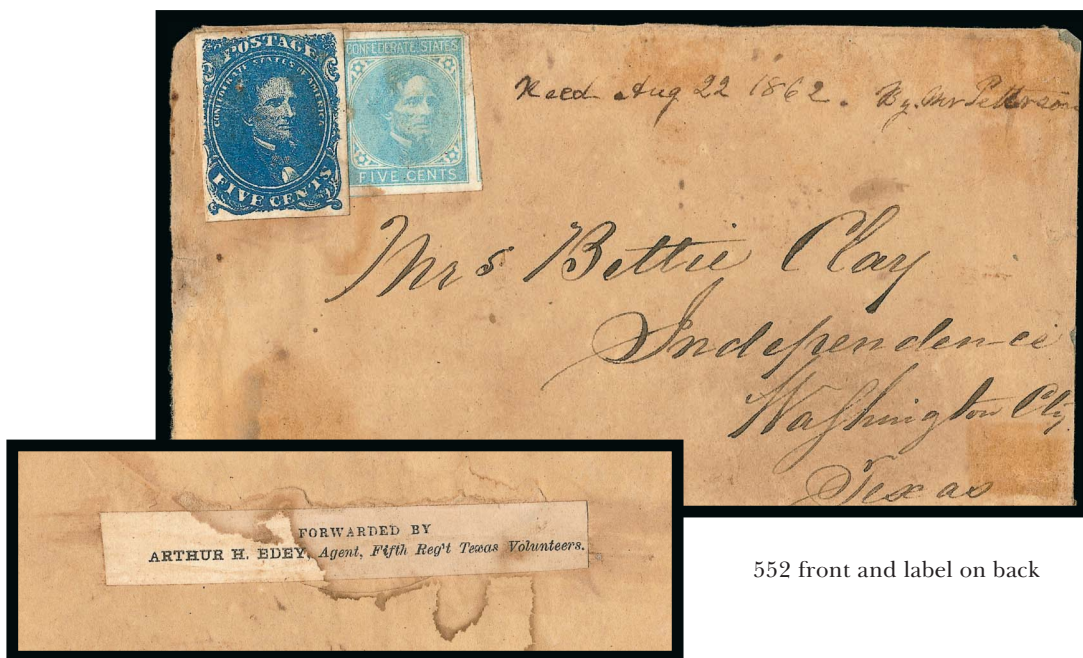 POSTAGE
CONFEDERATE STATES OF AMERICA
FIVE CENTS
CONFEDERATE STATES
FIVE CENTS
Recd Aug 22 1862. By Mr
Mrs Bettie Clay
Independence
Washington Cty.
Texas
FORWARDED BY
ARTHUR H. EDEY, Agent, Fifth Reg't Texas Volunteers.
552 front and label on back